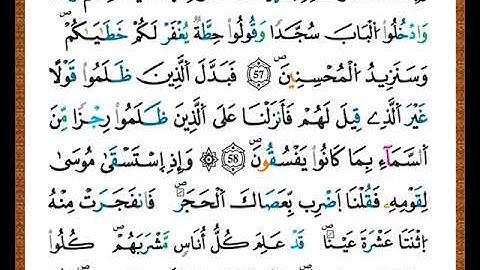 وَادْخُلُوا۟ اُ۬لْبَابَ سُجَّدًا وَقُولُوا۟ حِطَّةٌ يُغْفَرْ لَكُمْ خَطَٰيَٰكُمْۖ
وَسَنَزِيدُ اُ۬لْمُحْسِنِينَۖ 57 فَبَدَّلَ اَ۬لذِينَ ظَلَمُوا۟ قَوْلًا
غَيْرَ اَ۬لذِے قِيلَ لَهُمْ فَأَنزَلْنَا عَلَى اَ۬لذِينَ ظَلَمُوا۟ رِجْزًا مِّنَ
اَ۬لسَّمَآءِ بِمَا كَانُوا۟ يَفْسُقُونَۖ 58 ۞ وَإِذِ اِ۪سْتَسْقَىٰ مُوسَىٰ
لِقَوْمِهِۦ فَقُلْنَا اَ۪ضْرِب بِّعَصَاكَ اَ۬لْحَجَرَۖ فَانفَجَرَتْ مِنْهُ
اُ۪ثْنَتَا عَشْرَةَ عَيْنًاۖ قَدْ عَلِمَ كُلُّ أُنَاسٍ مَّشْرَبَهُمْۖ كُلُوا۟